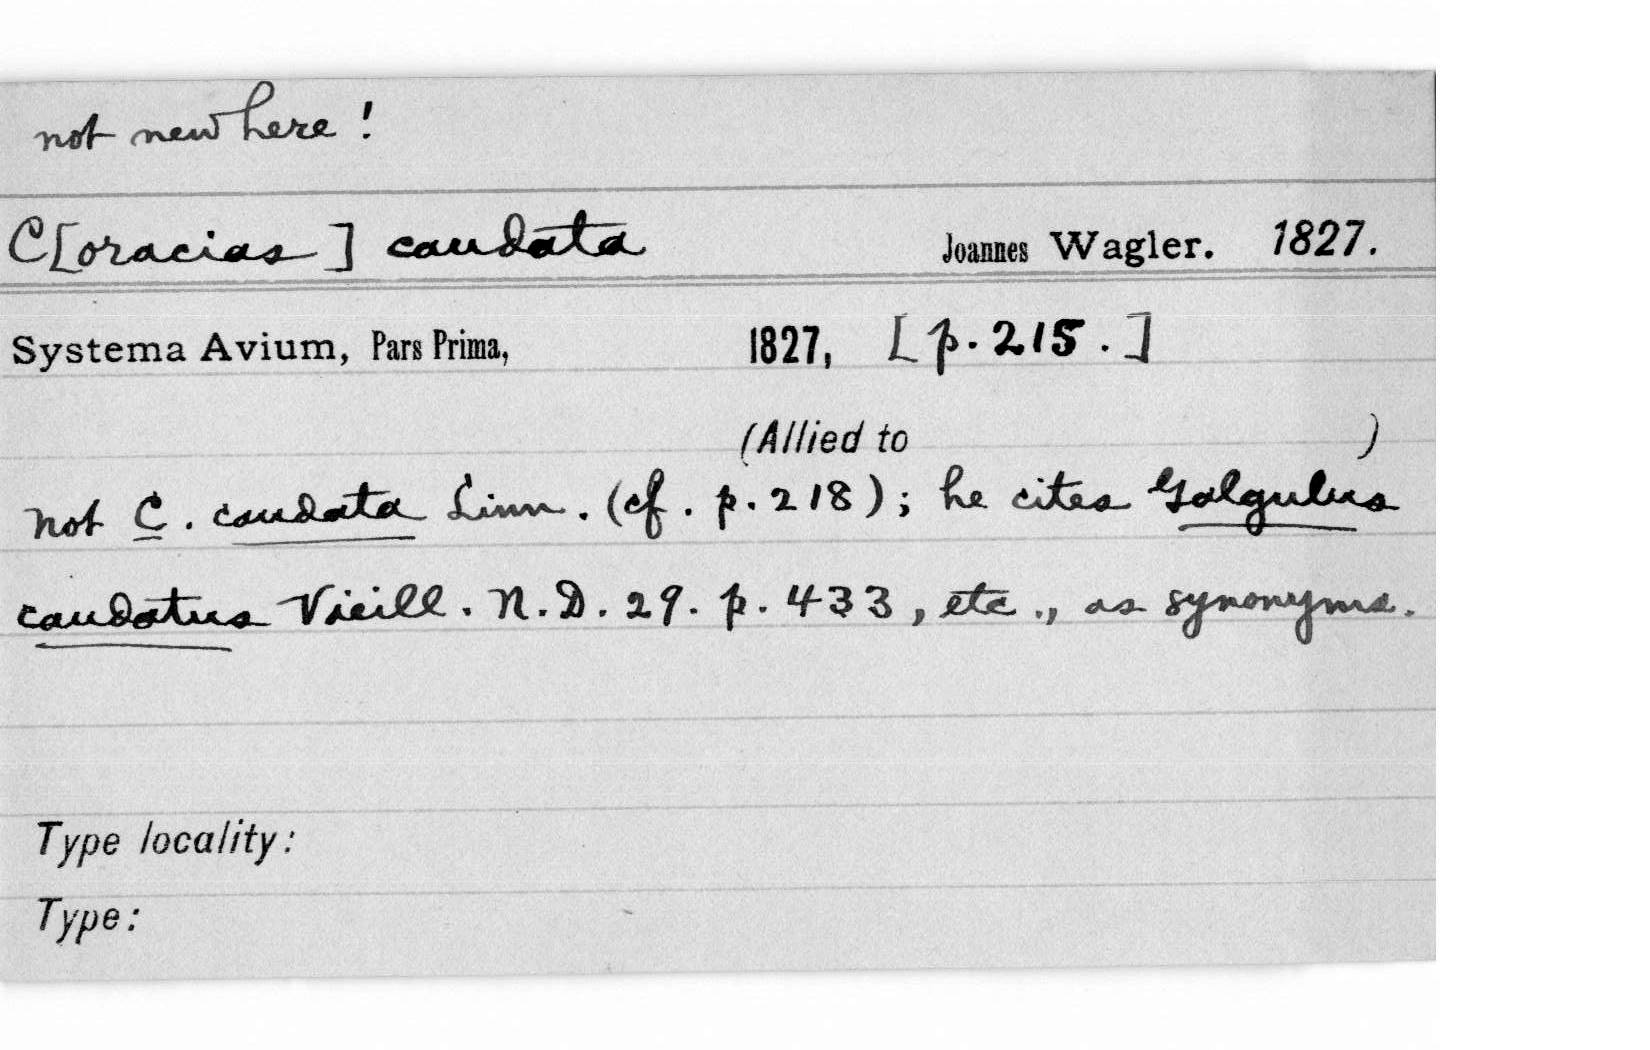 not new here !
C[oracias] caudata Joannes Wagler. 1827.
Systema Avium, Pars Prima, 1827, [p. 215.]
(Allied to )
not C. caudata Linn. (cf. p. 218); he cites Galgulus
caudatus Vieill. N.D. 29. p. 433, etc., as synonyms.
Type locality:
Type: